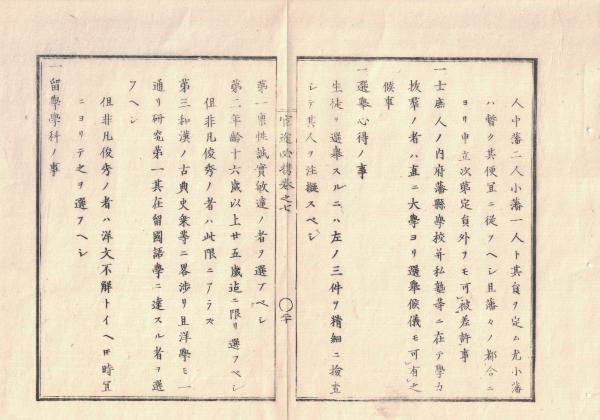 人中藩二人小藩一人ト其員ヲ定ム尤小藩
ハ暫ク其便宜ニ從フヘシ且藩々ノ都合ニ
ヨリ申立次第定員外ヲモ可被差許事
一士庶人ノ内府藩縣學校并私塾等ニ在テ學力
拔羣ノ者ハ直ニ大學ヨリ選擧候儀モ可有之
候事
一選擧心得ノ事
生徒ヲ選擧スルニハ左ノ三件ヲ精細ニ檢査
シテ其人ヲ注擬スヘシ
官途必携巻之七
○二十
第一稟性誠實敏達ノ者ヲ選フヘシ
第二年齡十六歳以上廿五歳迄ニ限リ選フヘシ
但非凡俊秀ノ者ハ此限ニアラス
第三和漢ノ古典史乘等ニ畧渉リ且洋學モ一
通リ研究第一其在留國語學ニ達スル者ヲ選
フヘシ
但非凡俊秀ノ者ハ洋文不解トイヘ𪜈時宜
ニヨリテ之ヲ選フヘシ
一留學學科ノ事